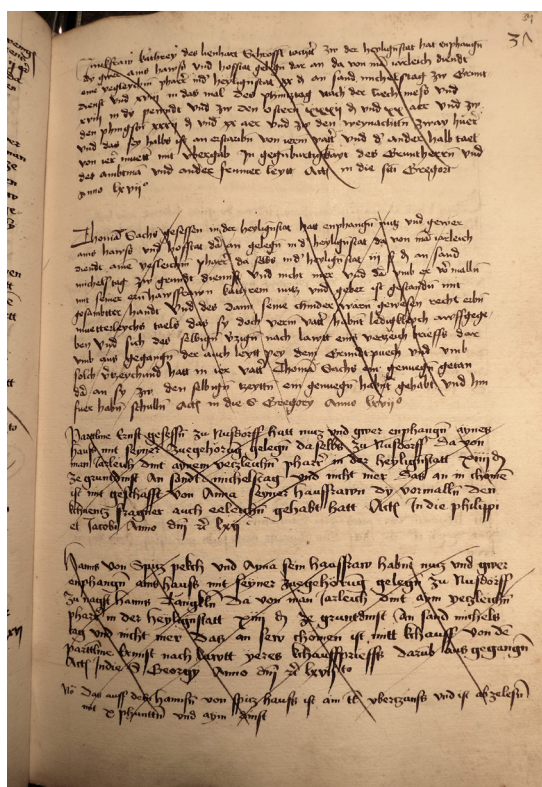 31
Junkfraw kathrey des lienhart Schrofft tochter zw der heyligenstat hat enphangen
ains hawss und hofstat gelegn dar an da von man iarleich diendt
ains yeglichen pharrer in d heyligenstat xx d an sand michelstag zw Grunt
dienst und xviij in das mal des phincztag nach der liechtmess und
xviij in der peründt und zw den ostern xxxij d und xx aer und zw
den phingsten xxxij d und xx aer und zw den weynachten zway huer
und das sy halbs ist an erstarbn von ierm vatter und d ander halb tael
von ier muetter mit ubergab In gegenburtigkayt des Gruntherrn und
des ambtman und ander frummer leytt Actum in die sancti Gregori
Anno lxvij
Thoman Sachs gesessen in der heyligenstat hat enphangen nutz und gewer
ains hawss und hoffstat gelegn in d heyligenstat da von man iarleich
diendt aim yesleichn pharrer da selbs in d heyligenstat d an sand
michelstag zw grundt dienst und nicht mer und dar umb er vormalln
mit seiner een hawsfrawn kathreyn nutz und geber ist gestandn mit
gesambtter handt und des dann seine chinder warn gewesen recht erbn
muetterleychs taels das sy doch verrn vatter habent ledigkleych awffgege
ben und sich des selbign verzign nach lawtt eins verzeich brieffs dar
umb aus gegangn der auch leytt pey dem Grundtpuech und umb
solch verzeychnus hatt in ier vatter Thoman Sachs ein genuegn getan
an sy zw den selbign zeyttn ein genuegn habent gehabt und hin
fuer habn schulln Actum in die S Gregory Anno lxvij
Parttlme Ernst gesessn zu Nusdorff hatt nutz und gwer enphangen aynes
hauss mit seyner zuegehorug gelegn da selbs zu Nusdorff Da von
man iarleich dint aynem yetzleichn pharrer in der heyligenstatt xiiij d
ze gruntdinst An sandt michelstag und nicht mer das an in chomen
ist mit geschafft von Anna seyner hausfrawn dy vormalln den
fragner auch eeleichn gehabt hatt Actum In die philippi
et Jacobi Anno dni lxij
Hanns von Spitz pekch und Anna sein hausfraw habn nutz und gwer
enphangn ains hauss mit seyner zuegehorug gelegn zu Nusdorff
zu nagst hanns Da von man iarleich dint aym yetzleichn
pharrer in der heyligenstatt xiiij d ze gruntdinst An sand michels
tag und nicht mer das an sew chomen ist mitt kchauff von dem
Parttlme Ernst nach lawtt yeres kchauffprieffs darub aus gegangn
Actum Indie S Georgy Anno dni lxvij to
No das auff des hannsn von spitz hauss ist am ubergenss und ist abzelesn
mit x phunttn und aym dinst